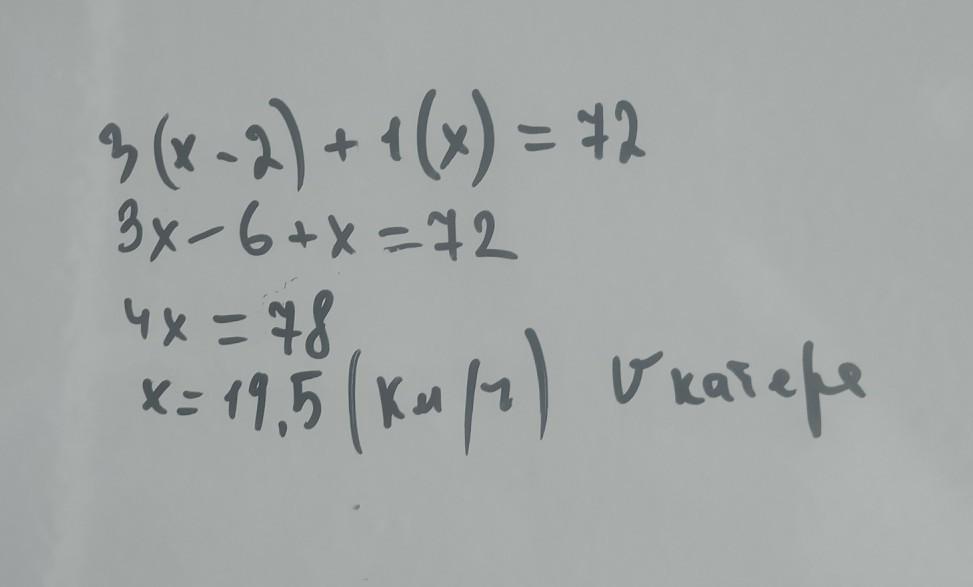 3(x-2)+1(x)=72
3x-6+x=72
4x=78
x=19,5(км/ч) V катера